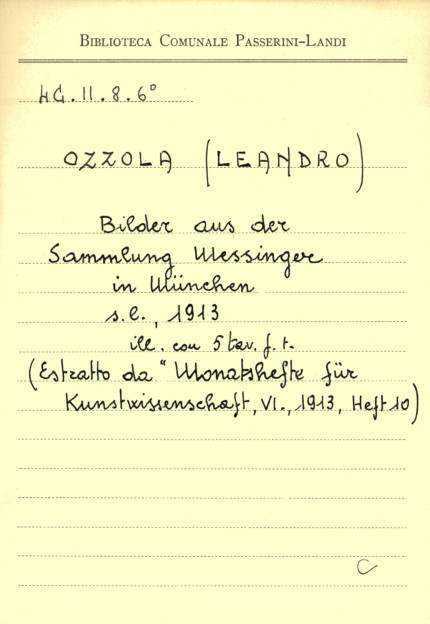 BIBLIOTECA COMUNALE PASSERINI-LANDI
4G.II.8.6°
OZZOLA (LEANDRO)
Bilder aus der
Sammlung Messinger
in München
s.l., 1913
ill. con 5 tav. f. t.
(Estratto da "Monatshefte für
Kunstwissenschaft, VI., 1913, Heft 10)
C